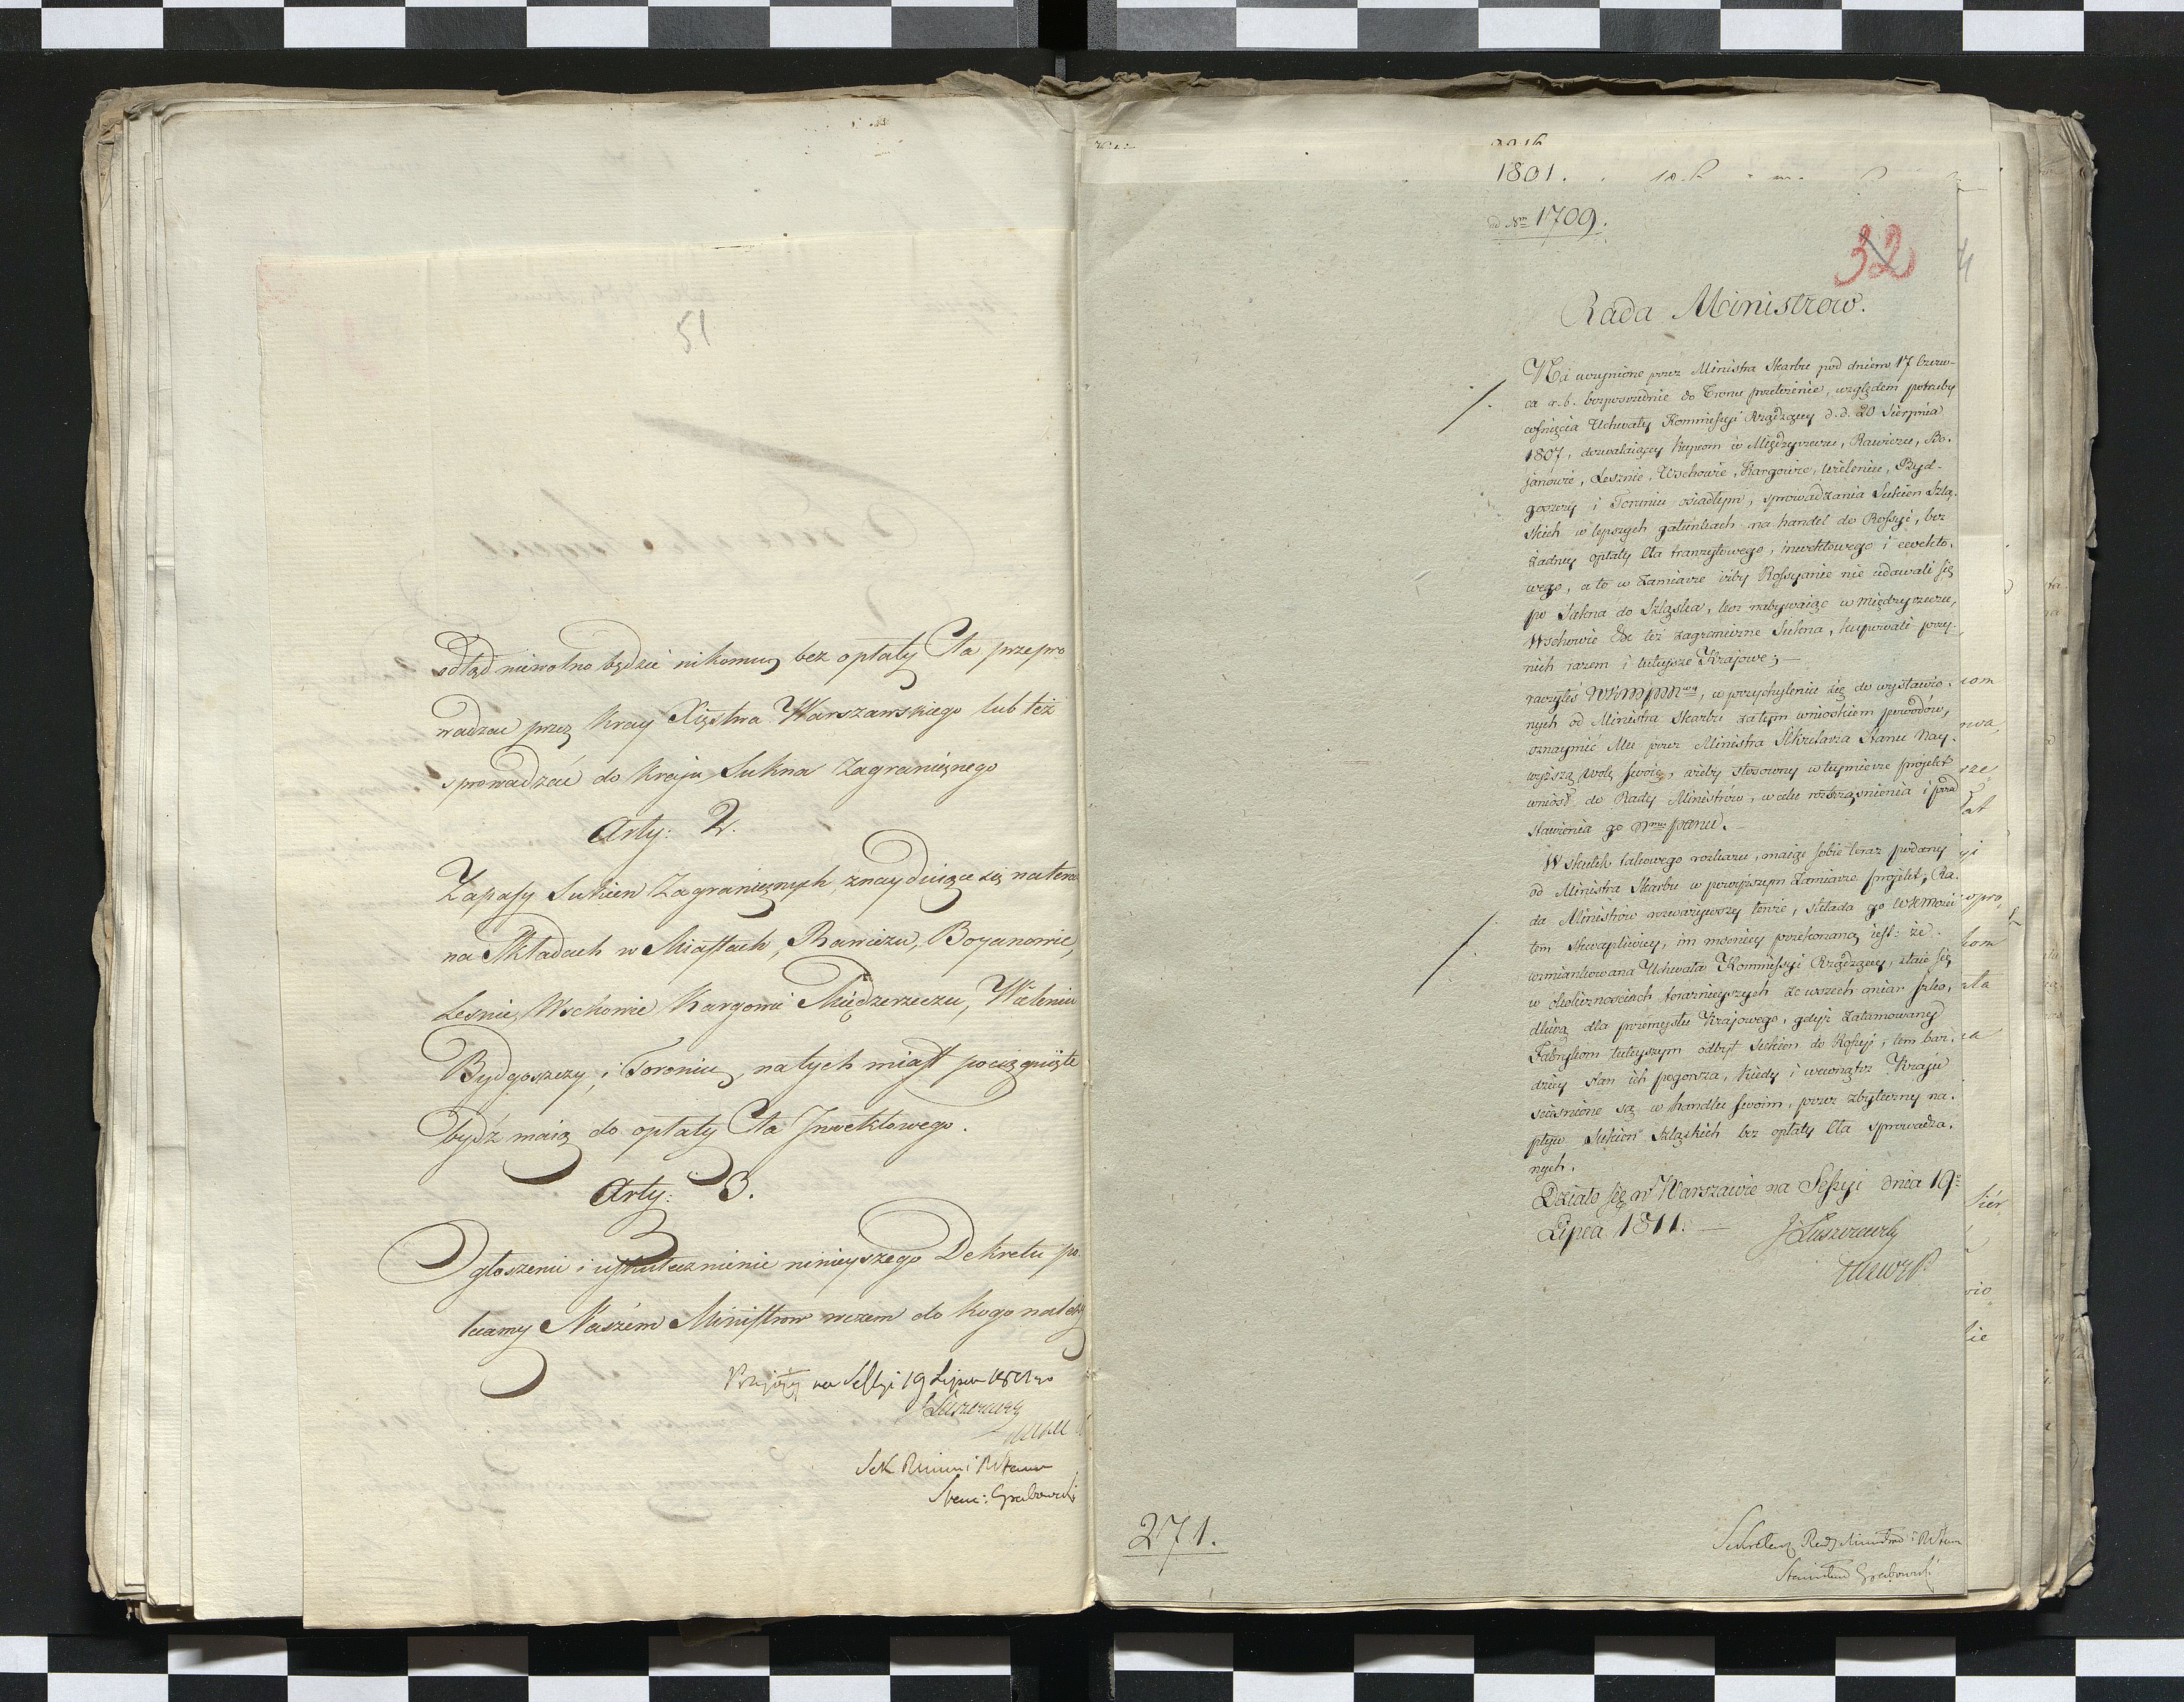 51
odtąd niewolno będzie nikomu bez opłaty Cła przepro
wadzać przez Kray Xięstwa Warszawskiego lub też
sprowadzać do Kraju Sukna Zagranicznego
Arty: 2.
Zapasy Sukien Zagranicznych znayduiące się na teraz
na Składach w Miastach, Rawiczu, Boyanowie,
Lesnie, Wschowie Kargowie Międzerzeczu, Wieleniu
Bydgoszczy, i Toroniu, natychmiast pociągnięte
bydź maią do opłaty Cła Inwektowego.
Arty: 3.
Ogłoszenie i uskutecznienie ninieyszego Dekretu po
lecamy Naszém Ministrom wczem do kogo należy
Przyięty na Sessyi 19 Lipca 1811 ro
J Łuszczewski
Sek Stanu
Grabowski
1801.
ad Nrm 1709.
32
Rada Ministrow.
Na uczynione przez Ministra Skarbu pod dniem 17 Czerw-
ca r. b. bezpośrednie do Tronu przełożenie, względem potrzeby
cofnięcia Uchwały Kommissyi Rządzącey d. d. 20 Sierpnia
1807, dozwalaiącey Kupcom w Międzyrzeczu, Rawiczu, Bo-
janowie, Lesznie, Wschowie, Kargowie, Wieleniu, Byd-
goszczy i Toruniu osiadłym, sprowadzania Sukien Szlą-
skich w lepszych gatunkach na handel do Rossyi, bez
żadney opłaty Cła tranzytowego, inwektowego i ewekto-
wego, a to w zamiarze iżby Rossyanie nie udawali się
po Sukna do Szląska, lecz nabywaiąc w Międzyrzeczu,
Wschowie &c też zagraniczne Sukna, kupowali przy
nich razem i tuteysze Krajowe; —
raczyłeś WKMPM, w przychyleniu się do wystawio-
nych od Ministra Skarbu za tym wnioskiem powodów,
oznaymić Mu przez Ministra Sekretarza Stanu Nay-
wyższą wolę swoię, ażeby stosowny w teymierze projekt
wniosł do Rady Ministrów, w celu roztrząśnienia i przed
stawienia go Nmu Panu. —
W skutek takowego rozkazu, maiąc sobie teraz podany
od Ministra Skarbu w powyższym zamiarze projekt, Ra-
da Ministrów rozważywszy tenże, składa go WKMości
tem skwapliwiey, im mocniey przekonaną iest: że
wzmiankowana Uchwała Kommissyi Rządzącey, staie się
w okolicznościach teraźnieyszych ze wszech miar szko-
dliwą dla przemysłu Krajowego, gdyż zatamowany
Fabrykom tuteyszym odbyt Sukien do Rossyi, tem bar-
dziey stan ich pogorsza, kiedy i wewnątrz Kraju
ścieśnione są w handlu swoim, przez zbyteczny na-
pływ Sukien Szląskich bez opłaty Cła sprowadza-
nych.
Działo się w Warszawie na Sessyi dnia 19
Lipca 1811. —
J Łuszczewski
271.
Sekretarz Rady Ministrów i R Stanu
Stanisław Grabowski